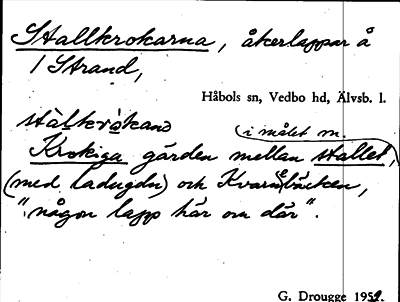 Stallkrokarna, åkerlappar å
1 Strand,
Håbols sn, Vedbo hd, Älvsb. l.
stàlkrókanɔ
(i målet m.
Krokiga gärden mellan stallet,
(med ladugdn) och Kvarnebäcken,
"någon lapp här om där".
G. Drougge 1952.